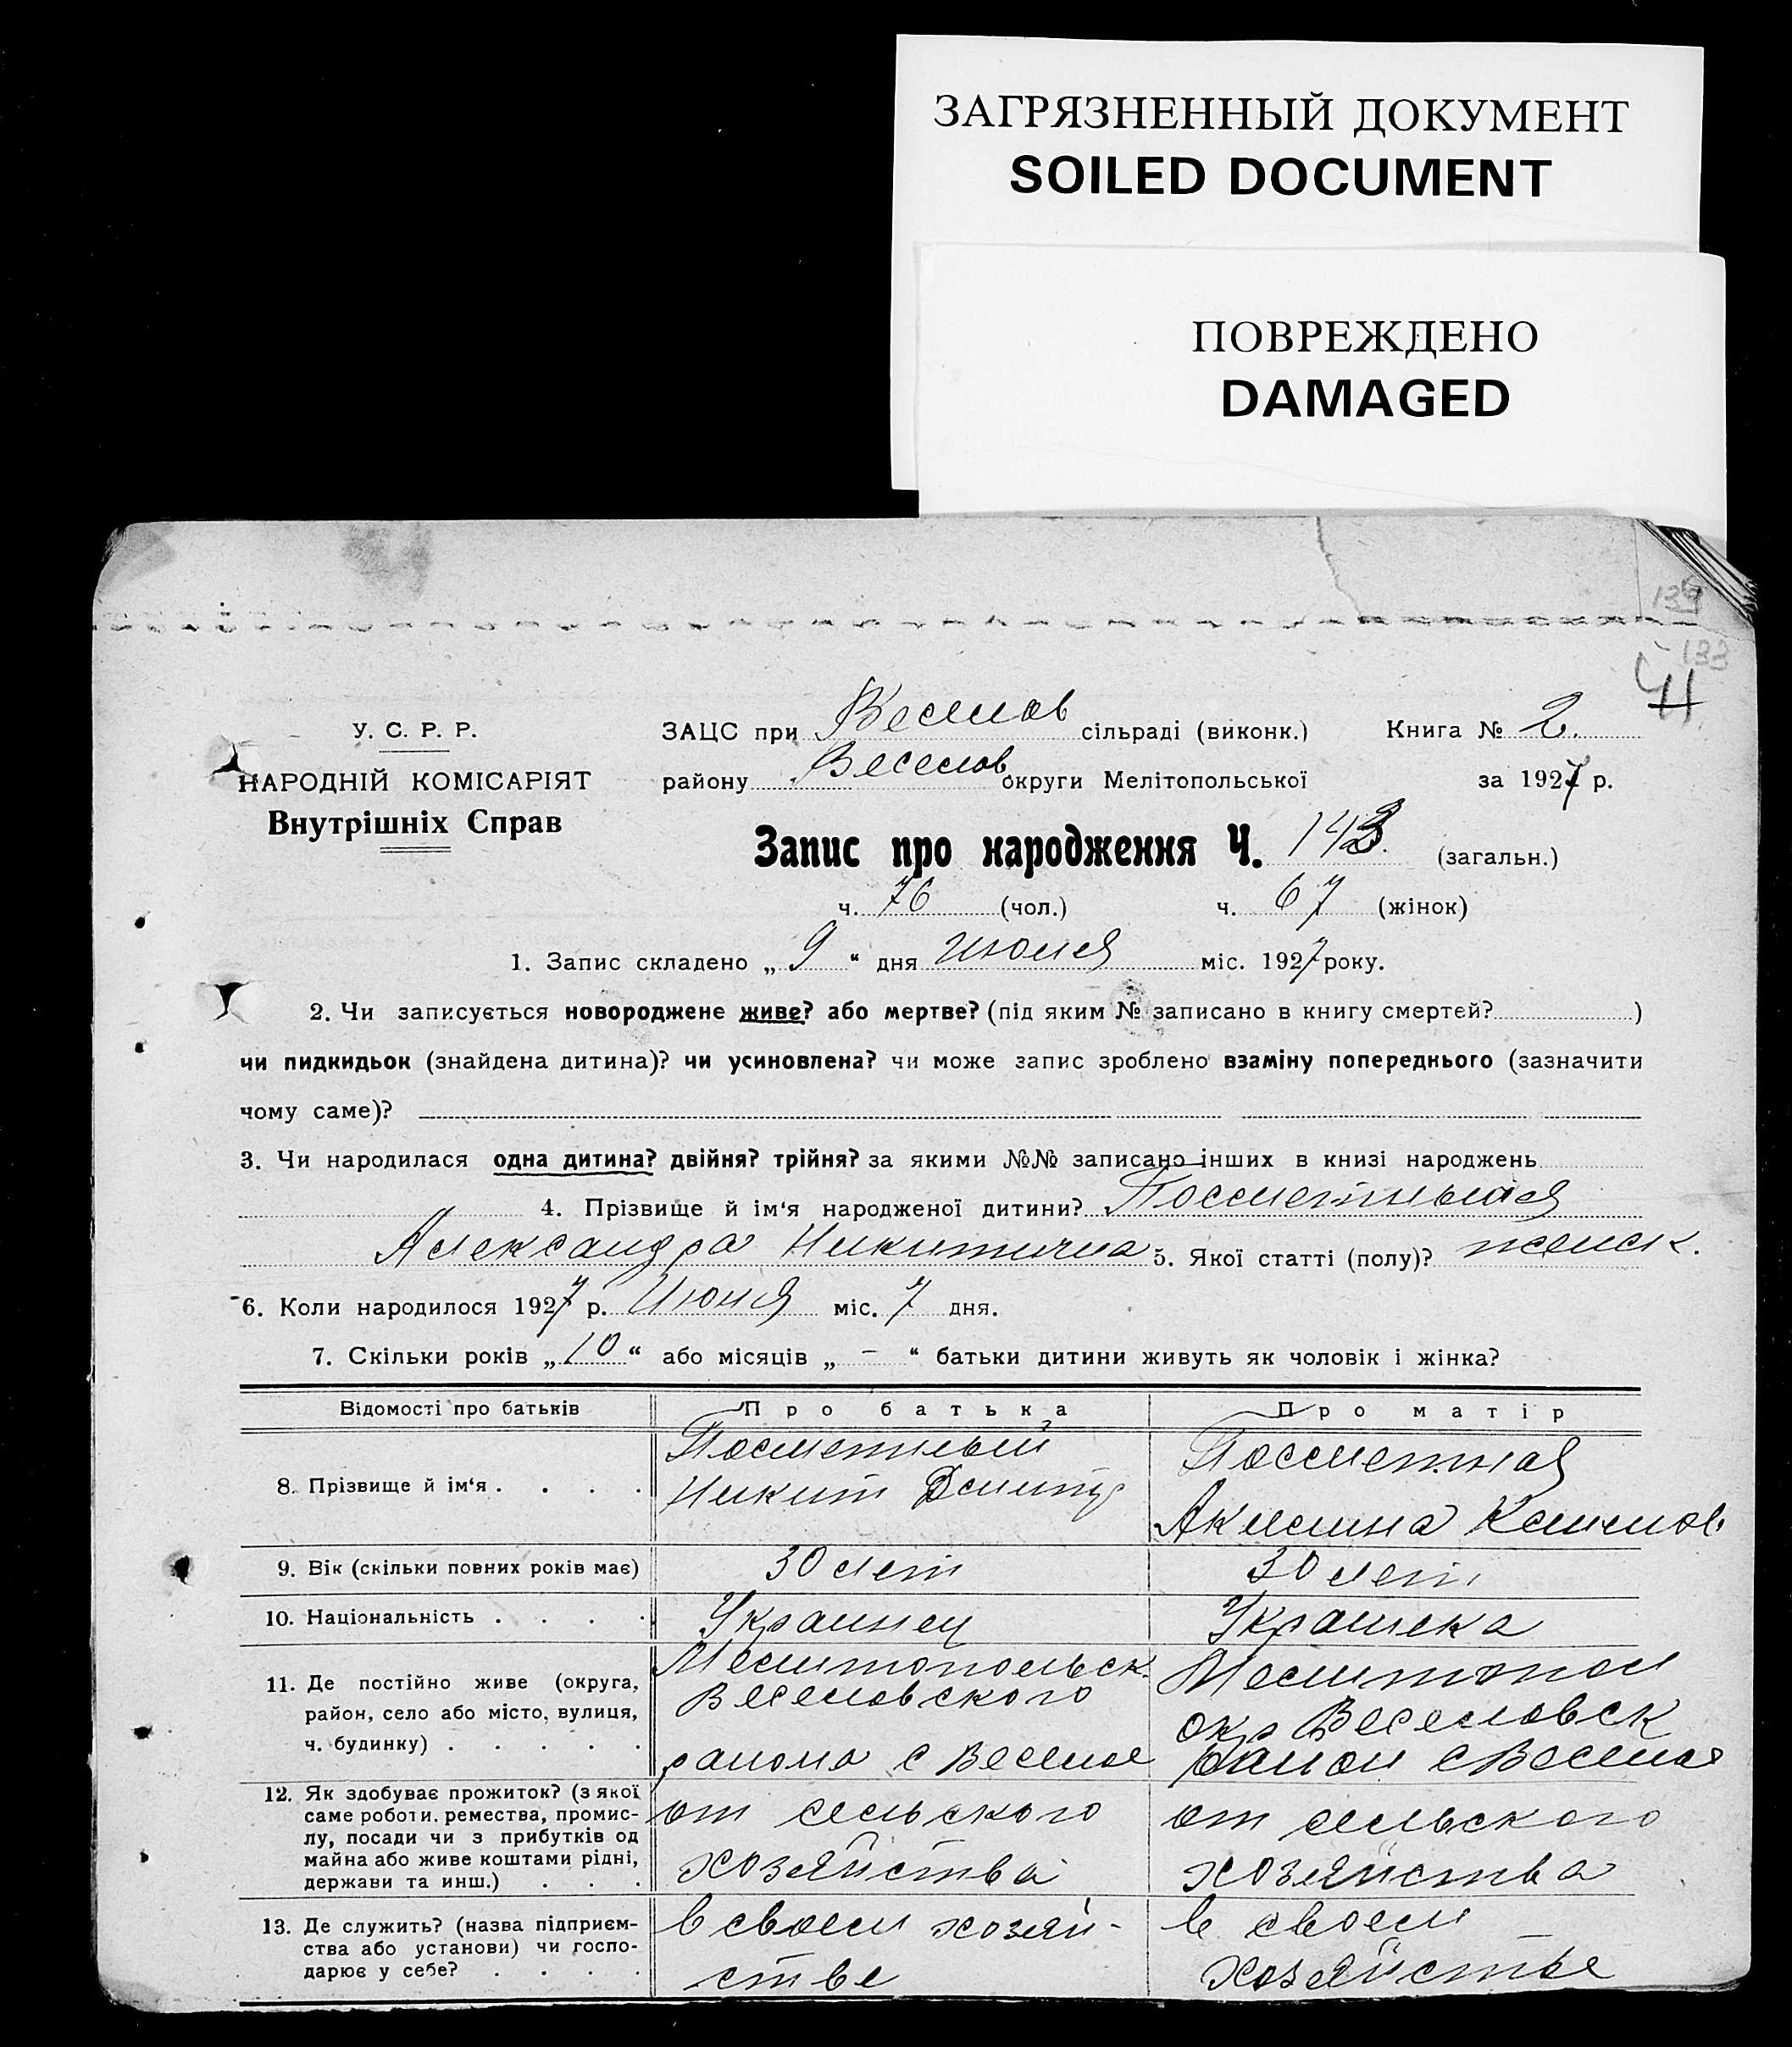 ЗАГРЯЗНЕННЫЙ ДОКУМЕНТ
SOILED DOCUMENT
ПОВРЕЖДЕНО
DAMAGED
133
У. С. Р. Р.
НАРОДНІЙ КОМІСАРІЯТ
Внутрішніх Справ
ЗАЦС при Веселов сільраді (виконк.) Книга № 2.
району Веселов округи Мелітопольської за 1927 р.
Запис про народження Ч. 143. (загальн.)
ч. 76 (чол.) ч. 67 (жінок)
1. Запис складено „ 9 “ дня июня міс. 1927 року.
2. Чи записується новороджене живе? або мертве? (під яким № записано в книгу смертей? )
чи пидкидьок (знайдена дитина)? чи усиновлена? чи може запис зроблено взаміну попереднього (зазначити
чому саме)?
3. Чи народилася одна дитина? двійня? трійня? за якими №№ записано інших в книзі народжень
4. Прізвище й ім‘я народженої дитини?
Александра Никитична 5. Якої статті (полу)? женск.
6. Коли народилося 1927 р. Июня міс. 7 дня.
7. Скільки років „ 10 “ або місяців „ – “ батьки дитини живуть як чоловік і жінка?
Відомості про батьків
Про батька
Про матір
8. Прізвище й ім‘я . . . .
Посметный
Никит Дмитр
Посметная
Акилина
9. Вік (скільки повних років має)
30 лет
30 лет
10. Національність . . . .
Украинец
Украинка
11. Де постійно живе (округа,
район, село або місто, вулиця,
ч. будинку) . . . . .
Мелитопольск.
Веселовского
района с Веселое
Мелитопол
окр Веселовск
район с Веселое
12. Як здобуває прожиток? (з якої
саме роботи, ремества, промис-
лу, посади чи з прибутків од
майна або живе коштами рідні,
держави та инш.) . . .
от сельского
хозяйства
от сельского
хозяйства
13. Де служить? (назва підприєм-
ства або установи) чи госпо-
дарює у себе? . . . .
в своем хозяй-
стве
в своем
хозяйстве